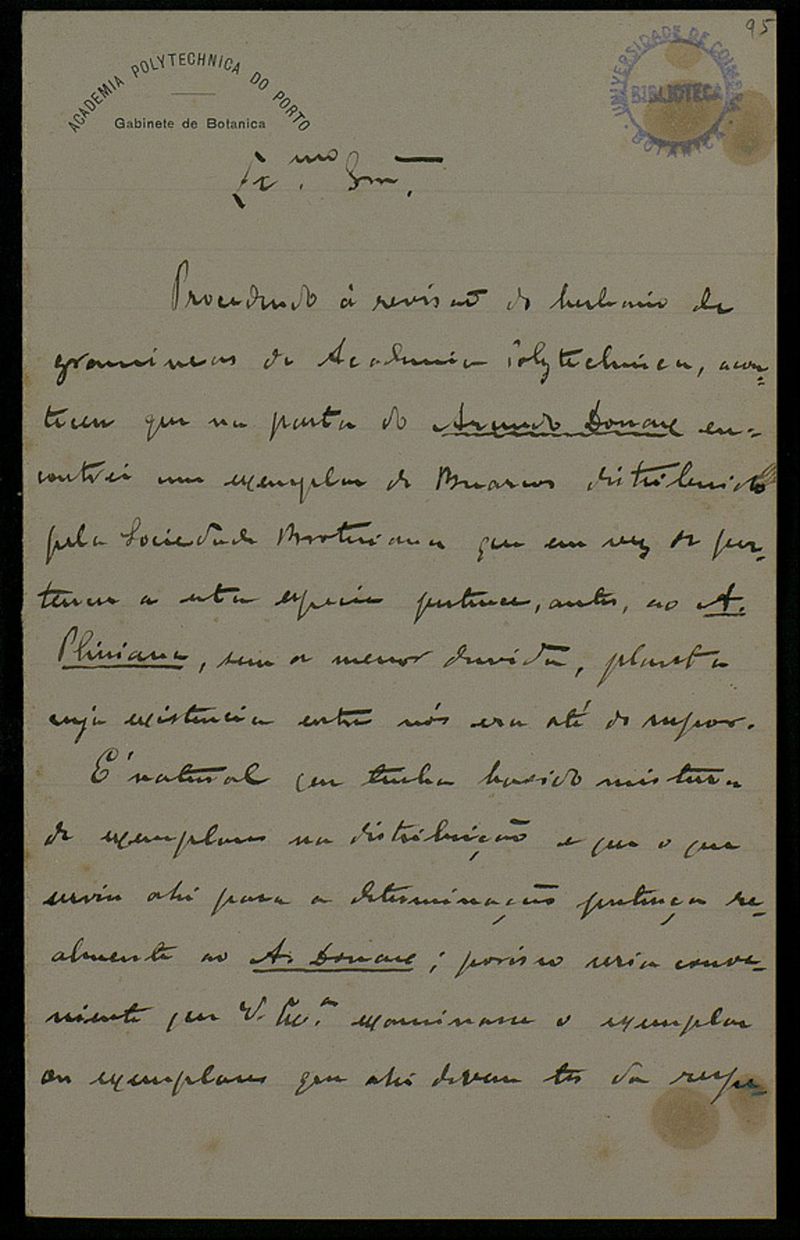 95
ACADEMIA POLYTECHNICA DO PORTO
Gabinete de Botanica
UNIVERSIDADE DE COIMBRA
BIBLIOTECA
BOTANICA
Ex.mo Snr.
Procedendo á revisaõ do herbario de
gramineas da Academia Polytechnica, acon-
teceu que na pasta do Arundo Donax en-
contrei um exemplar de Buarcos distribuido
pela Sociedade Broteriana que em vez de per-
tencer a esta especie pertence, antes, ao A.
Pliniana, sem a menor duvida, planta
cuja existencia entre nós era até de suppor.
É natural que tenha havido mistura
de exemplares na distribuição e que o que
serviu ahi para a determinação pertença re-
almente ao A. Donax; porisso seria conve-
niente que V. Ex.a examinasse o exemplar
ou exemplares que ahi devem ter da respe-